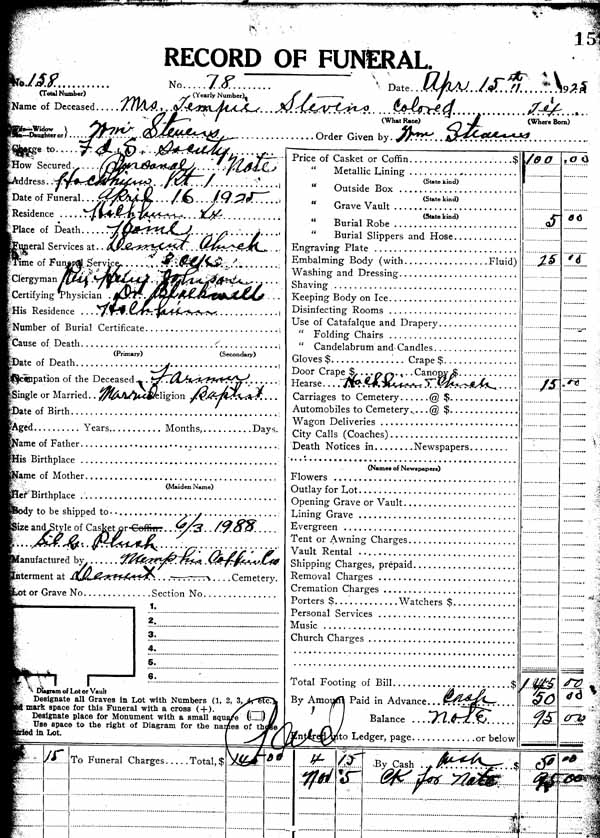 15
RECORD OF FUNERAL.
No. 158 No. 78 Date Apr 15th 1925
(Total Number) (Yearly Number)
Name of Deceased Mrs. Tempie Stevens Colored Tex
(What Race) (Where Born)
Wife—Widow
Son—Daughter or Wm Stevens Order Given by Wm Stevens
Charge to Society
How Secured Personal Note
Address Rt 1
Date of Funeral April 16 1925
Residence
Place of Death Home
Funeral Services at Dement Church
Time of Funeral Service
Clergyman Johnson
Certifying Physician Dr. Blackwell
His Residence
Number of Burial Certificate
Cause of Death
(Primary) (Secondary)
Date of Death
Occupation of the Deceased Farmer
Single or Married Married Religion Baptist
Date of Birth
Aged Years, Months, Days.
Name of Father
His Birthplace
Name of Mother
(Maiden Name)
Her Birthplace
Body to be shipped to
Size and Style of Casket or Coffin 6/3 1988
Plush
Manufactured by Memphis Coffin Co
Interment at Dement Cemetery.
Lot or Grave No. Section No.
1.
2.
3.
4.
5.
6.
Diagram of Lot or Vault
Designate all Graves in Lot with Numbers (1, 2, 3, 4, etc.)
and mark space for this Funeral with a cross (+).
Designate place for Monument with a small square
Use space to the right of Diagram for the names of those
buried in Lot.
Price of Casket or Coffin $ 100 .00
" Metallic Lining
(State kind)
" Outside Box
(State kind)
" Grave Vault
(State kind)
" Burial Robe 5 00
" Burial Slippers and Hose
Engraving Plate
Embalming Body (with Fluid) 25 00
Washing and Dressing
Shaving
Keeping Body on Ice
Disinfecting Rooms
Use of Catafalque and Drapery
" Folding Chairs
" Candelabrum and Candles
Gloves $ Crape $
Door Crape $ Canopy $
Hearse Church 15 .00
Carriages to Cemetery @ $
Automobiles to Cemetery @ $
Wagon Deliveries
City Calls (Coaches)
Death Notices in Newspapers
(Names of Newspapers)
Flowers
Outlay for Lot
Opening Grave or Vault
Lining Grave
Evergreen
Tent or Awning Charges
Vault Rental
Shipping Charges, prepaid
Removal Charges
Cremation Charges
Porters $ Watchers $
Personal Services
Music
Church Charges
Total Footing of Bill $ 145 00
By Amount Paid in Advance Cash 50 00
Balance Note 95 00
Entered into Ledger, page or below
Paid
15 To Funeral Charges Total, $ 145 00 4 15 By Cash Cash $ 50 00
Nov 5 CK for Note 95 00